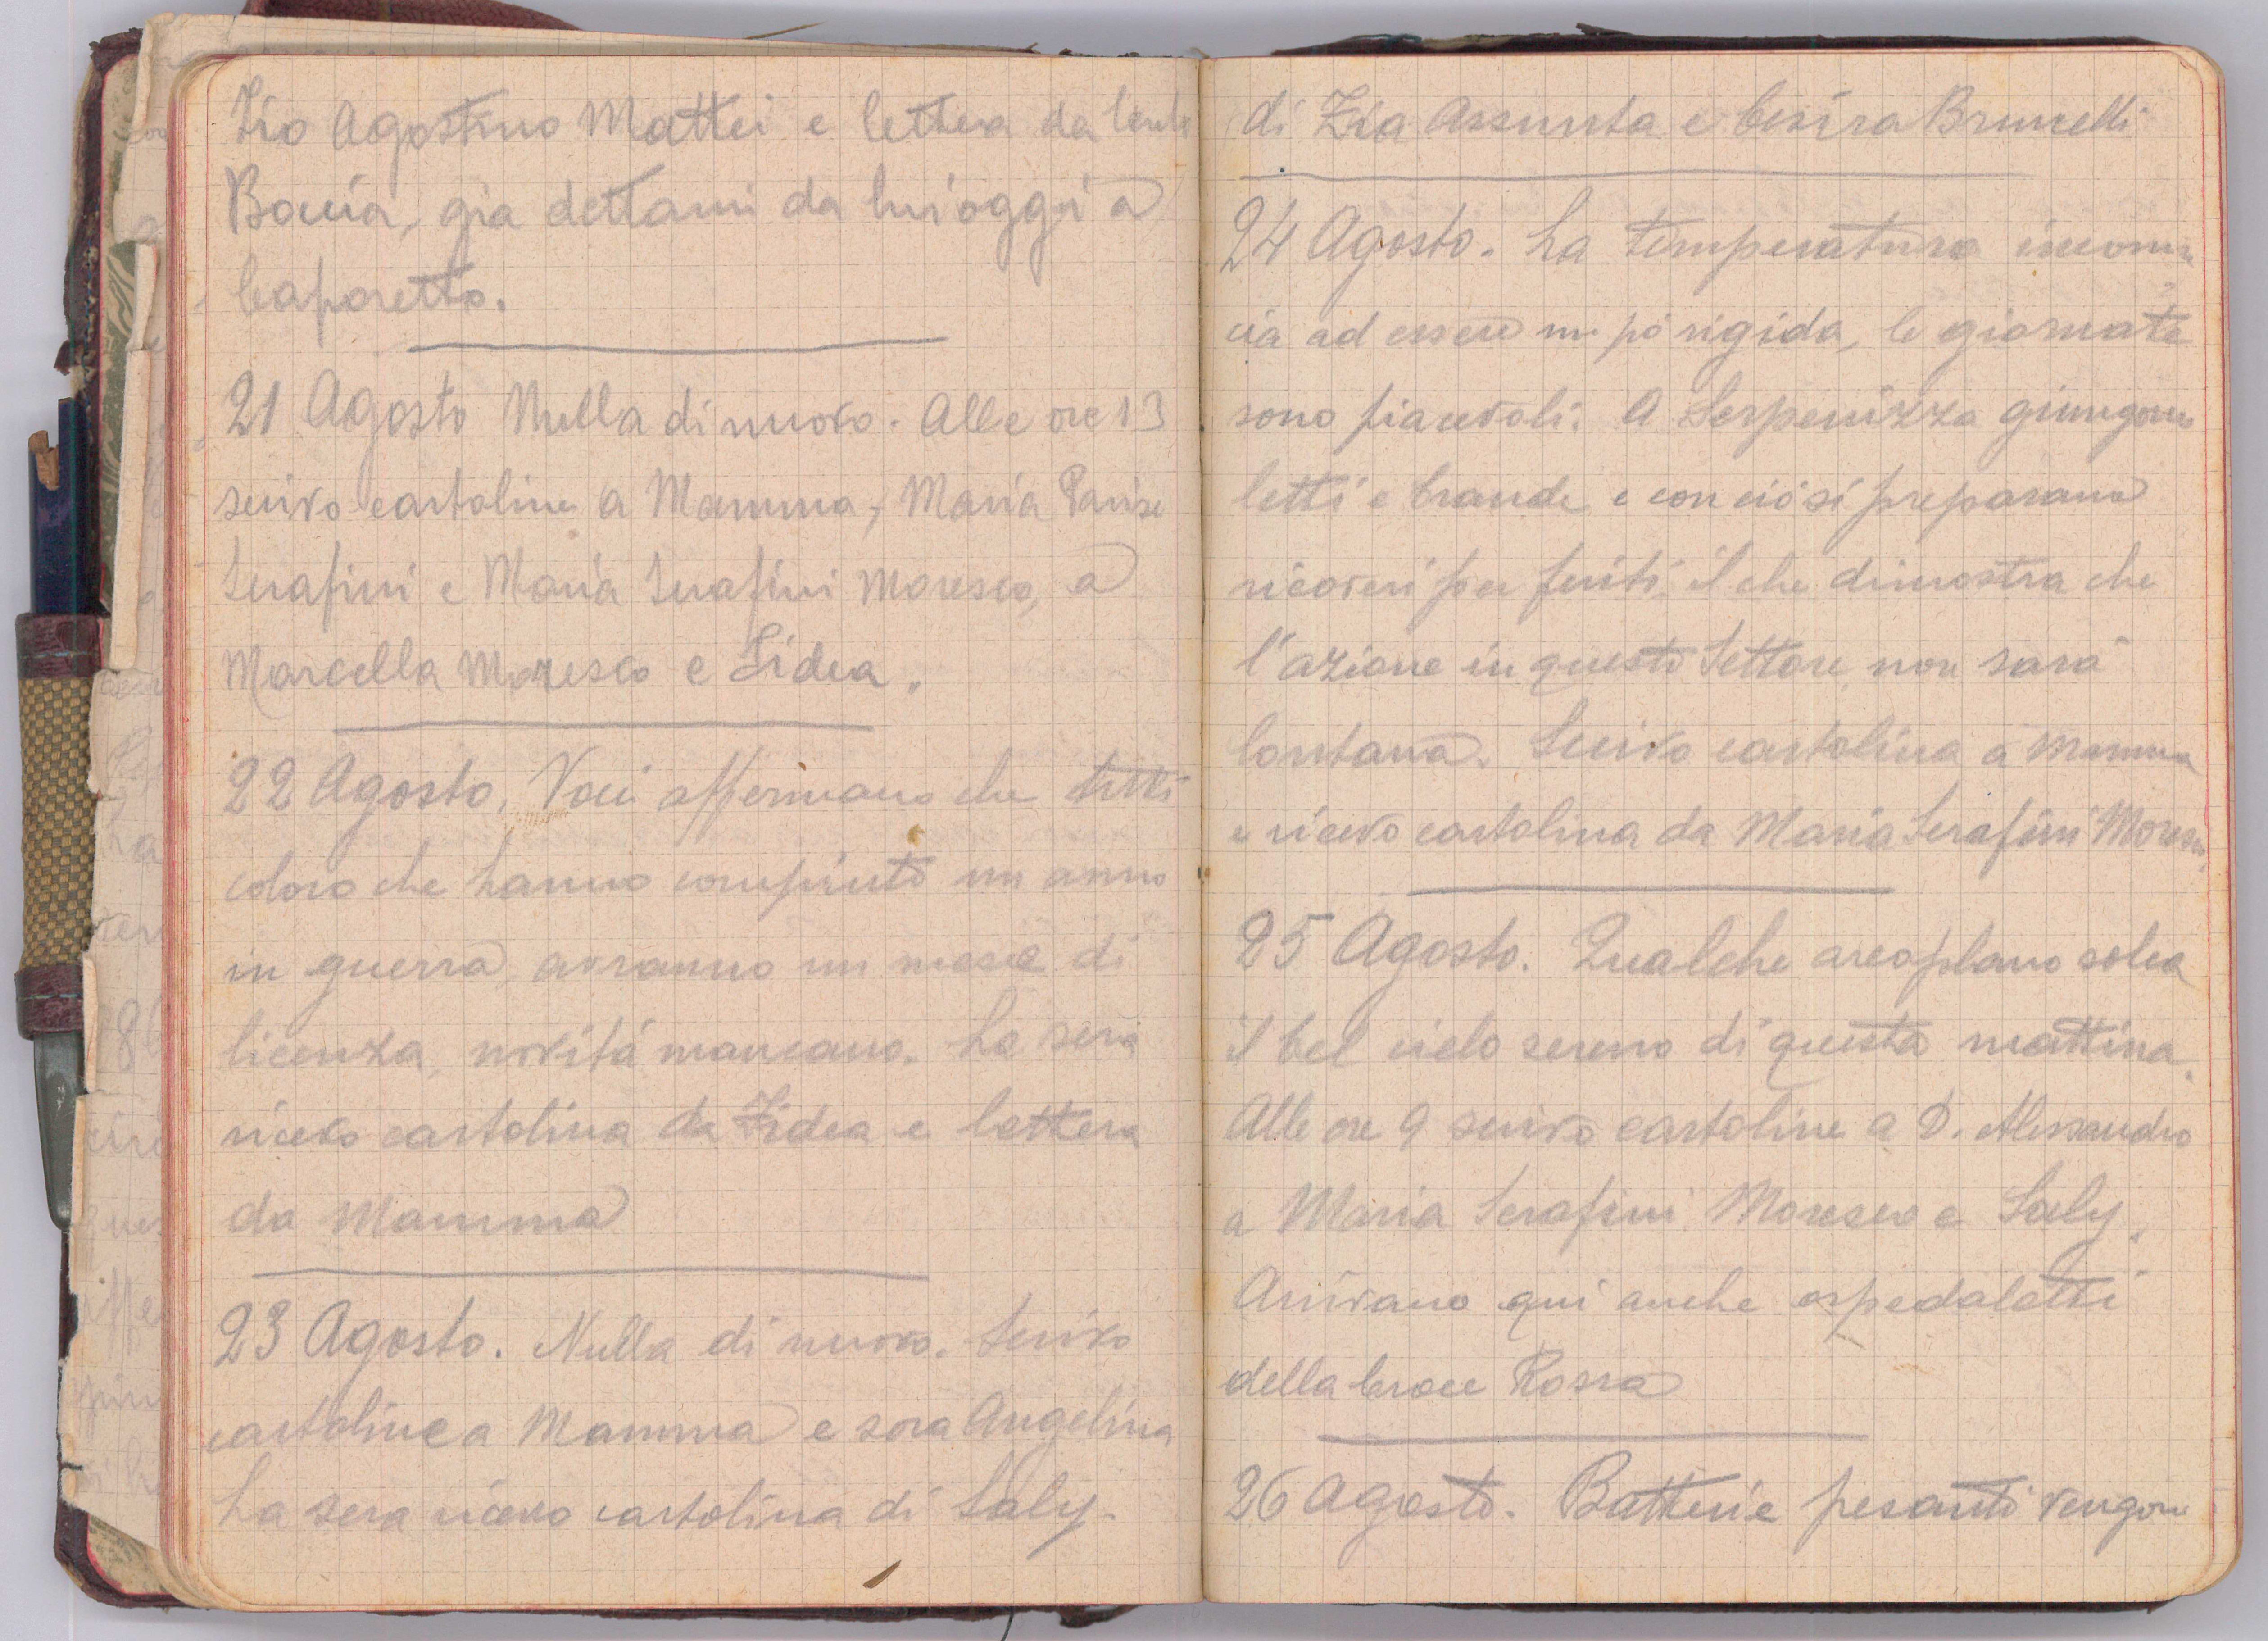 Zio Agostino Mattei e lettera da
Bovia, gia dettami da lui oggi a
Caporetto.
21 Agosto Nulla di nuovo. Alle ore 13
scrivo cartoline a Mamma, Maria Parise
Serafini e Maria Serafini Moresco, a
Marcella Moresco e Fidea.
22 Agosto. Voci affermano che tutti
coloro che hanno compiuto un anno
in guerra, avranno un mese di
licenza, novitá mancano. La sera
ricevo cartolina da Fidea e lettera
da Mamma
23 Agosto. Nulla di nuovo. Scrivo
cartoline a Mamma e sora Angelina
La sera ricevo cartolina di Saly.
di Zia Assunta e Cesira Brunelli
24 Agosto. La temperatura incomin
cia ad essere un pó rigida, le giornate
sono piacevoli. A Serpenizza giungono
letti e brande e con ció si preparano
ricoveri per feriti, il che dimostra che
l'azione in questo Settore non sará
lontana. Scrivo cartolina a Mamma
e ricevo cartolina da Maria Serafini Moresco.
25 Agosto. Qualche areoplano solca
il bel cielo sereno di questa mattina.
Alle ore 9 scrivo cartoline a D. Alessandro
a Maria Serafini Moresco e Saly.
Arrivano qui anche ospedaletti
della Croce Rossa
26 Agosto. Batterie pesanti vengono